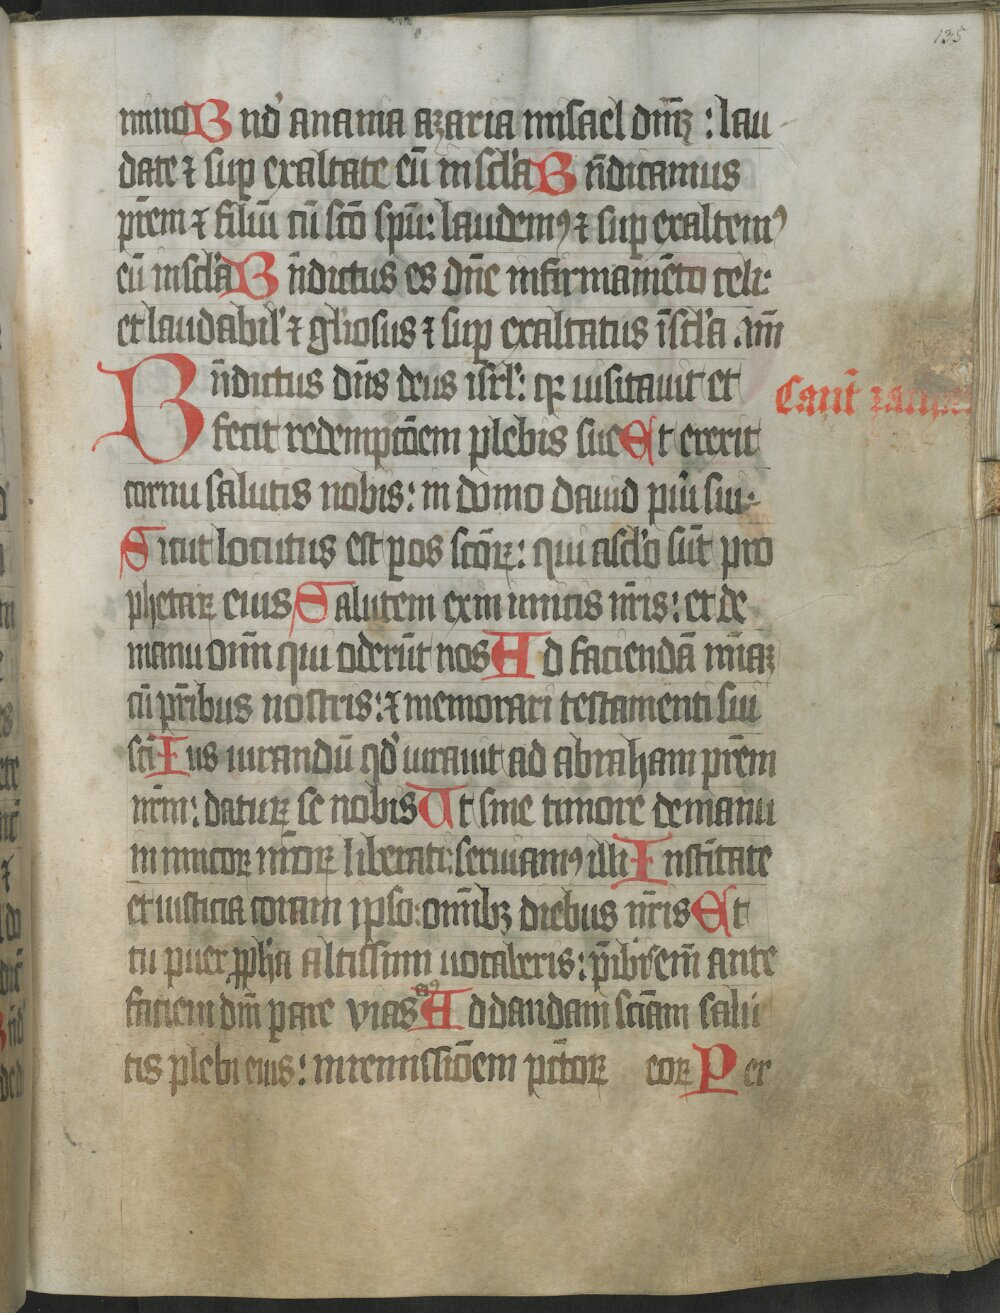 135
mino Bnd' anania azaria misael dn̄m : lau
date ⁊ sup exaltate eū in scl'a Bn̄dicamus
pr̄em ⁊ filiū cū sc̄o spū: laudemꝰ ⁊ sup exaltemꝰ
eū in scl'a Bn̄dictus es dn̄e in firmamēto celi:
et laudabil' ⁊ gl'iosus ⁊ sup exaltatus ī scl'a .
Bn̄dictus dn̄s deus isrl': qꝛ uisitauit et
Cant̄
fecit redemptōem plebis sue Et erexit
cornu salutis nobis: in domo dauid pūi sui:
Sicut locutus est p os scōꝝ: qui a scl'o sūt pro
phetaꝝ eius Salutem ex in imicis nr̄is: et de
manu om̄n qui oderūt nos Ad faciendā mīaꝫ
cū pr̄ibus nostris: ⁊ memorari testamenti sui
sc̄i Ius iurandū qd' iurauit ad abraham pr̄em
nr̄m: daturꝝ se nobis Ut sine timore de manu
in imicoꝝ nr̄oꝝ liberati: seruiamꝰ illi In sc̄itate
et iusticia coram ipso: omībꝫ diebus nr̄is Et
tu puer ꝓph'a altissimi uocaberis: p̄ibis em̄ ante
faciem dn̄i parare vias eiꝰ Ad dandam sciām salu
tis plebi eius: in remissiōem pctōꝝ eoꝝ Per